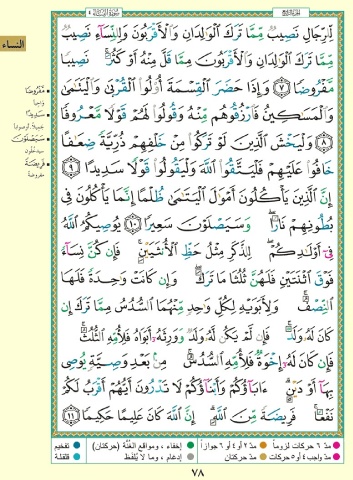 الجزء الرابع
سورة النساء ٤
النساء
لِّلرِّجَالِ نَصِيبٌ مِّمَّا تَرَكَ الْوَالِدَانِ وَالْأَقْرَبُونَ وَلِلنِّسَاءِ نَصِيبٌ
مِّمَّا تَرَكَ الْوَالِدَانِ وَالْأَقْرَبُونَ مِمَّا قَلَّ مِنْهُ أَوْ كَثُرَ ۚ نَصِيبًا
مَّفْرُوضًا ٧ وَإِذَا حَضَرَ الْقِسْمَةَ أُولُوا الْقُرْبَىٰ وَالْيَتَامَىٰ
وَالْمَسَاكِينُ فَارْزُقُوهُم مِّنْهُ وَقُولُوا لَهُمْ قَوْلًا مَّعْرُوفًا
٨ وَلْيَخْشَ الَّذِينَ لَوْ تَرَكُوا مِنْ خَلْفِهِمْ ذُرِّيَّةً ضِعَافًا
خَافُوا عَلَيْهِمْ فَلْيَتَّقُوا اللَّهَ وَلْيَقُولُوا قَوْلًا سَدِيدًا ٩
إِنَّ الَّذِينَ يَأْكُلُونَ أَمْوَالَ الْيَتَامَىٰ ظُلْمًا إِنَّمَا يَأْكُلُونَ فِي
بُطُونِهِمْ نَارًا ۖ وَسَيَصْلَوْنَ سَعِيرًا ١٠ يُوصِيكُمُ اللَّهُ
فِي أَوْلَادِكُمْ ۖ لِلذَّكَرِ مِثْلُ حَظِّ الْأُنثَيَيْنِ ۚ فَإِن كُنَّ نِسَاءً
فَوْقَ اثْنَتَيْنِ فَلَهُنَّ ثُلُثَا مَا تَرَكَ ۖ وَإِن كَانَتْ وَاحِدَةً فَلَهَا
النِّصْفُ ۚ وَلِأَبَوَيْهِ لِكُلِّ وَاحِدٍ مِّنْهُمَا السُّدُسُ مِمَّا تَرَكَ إِن
كَانَ لَهُ وَلَدٌ ۚ فَإِن لَّمْ يَكُن لَّهُ وَلَدٌ وَوَرِثَهُ أَبَوَاهُ فَلِأُمِّهِ الثُّلُثُ ۚ
فَإِن كَانَ لَهُ إِخْوَةٌ فَلِأُمِّهِ السُّدُسُ ۚ مِن بَعْدِ وَصِيَّةٍ يُوصِي
بِهَا أَوْ دَيْنٍ ۗ آبَاؤُكُمْ وَأَبْنَاؤُكُمْ لَا تَدْرُونَ أَيُّهُمْ أَقْرَبُ لَكُمْ
نَفْعًا ۚ فَرِيضَةً مِّنَ اللَّهِ ۗ إِنَّ اللَّهَ كَانَ عَلِيمًا حَكِيمًا ١١
• مَّفْرُوضًا
واجبا
• سَدِيدًا
• سَيَصْلَوْنَ
سيدخلون
• فَرِيضَةً
مفروضة
مدّ ٦ حركات لزوماً
مدّ ٢ أو ٤ أو ٦ جوازاً
مدّ واجب ٤ أو ٥ حركات
مدّ حركتان
إخفاء، ومواقع الغُنَّة (حركتان)
إدغام، وما لا يُلفَظ
تفخيم
قلقلة
٧٨